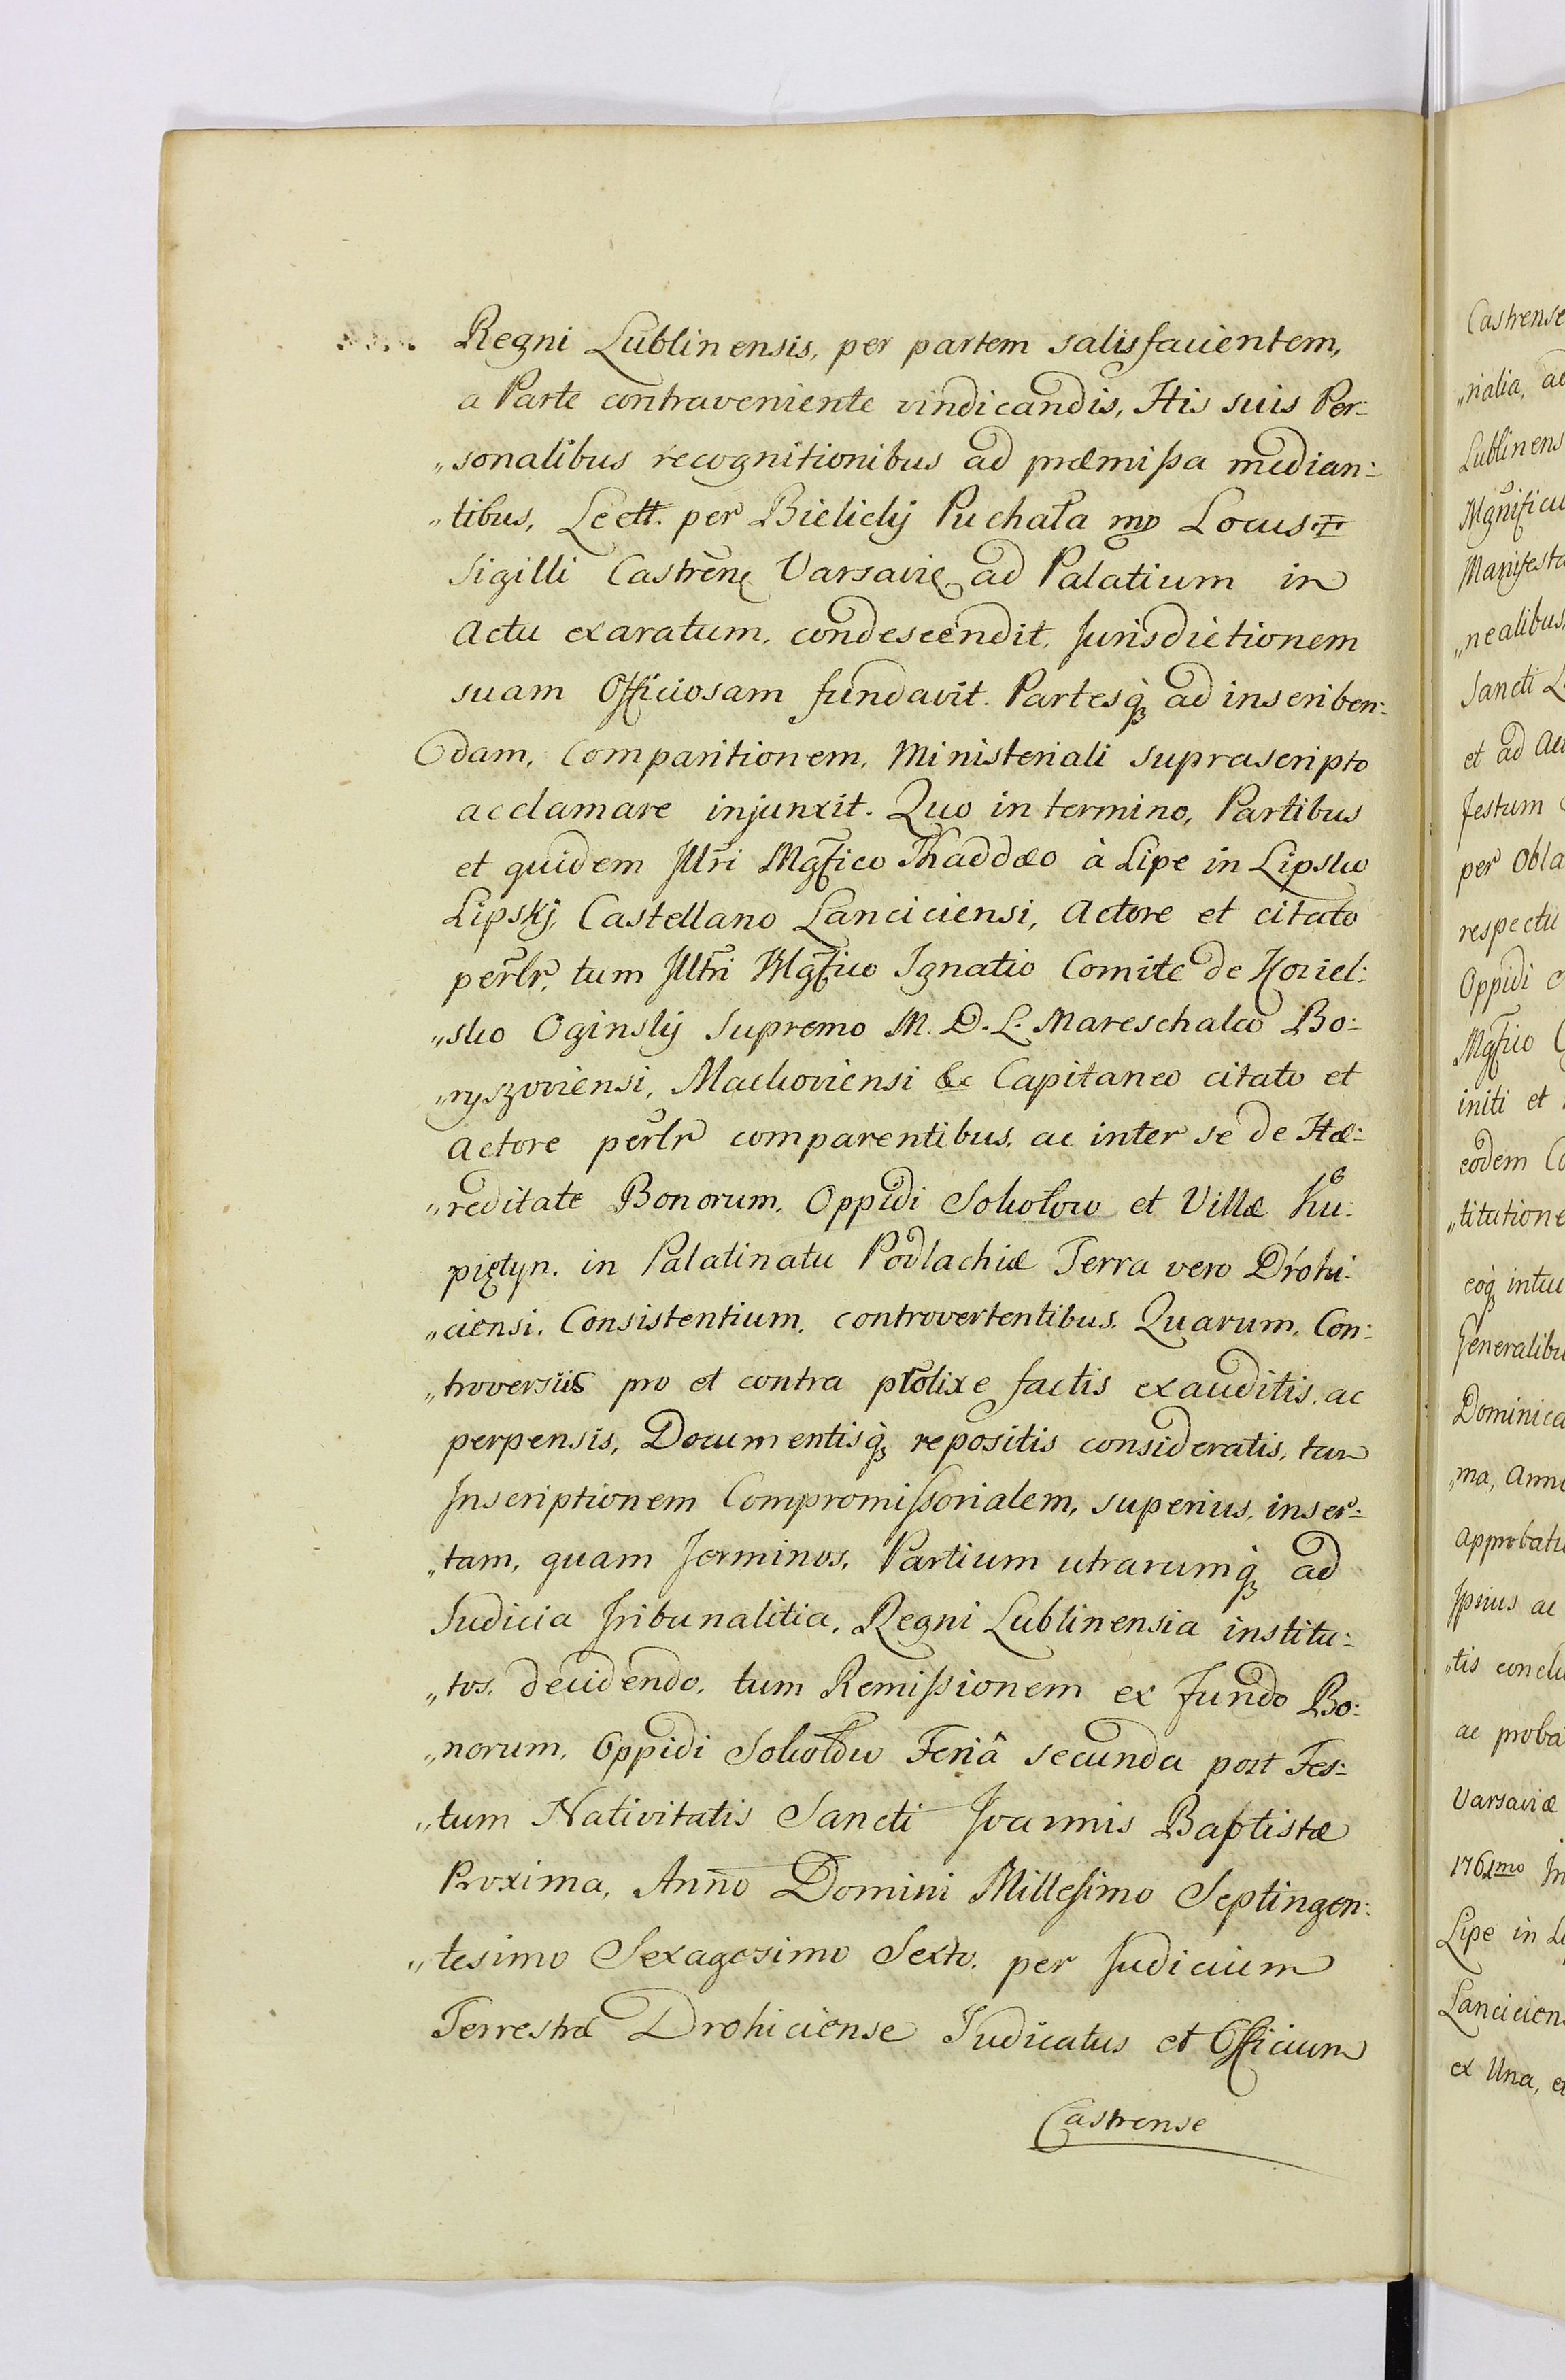 Regni Lublinensis, per partem satisfacientem,
a Parte contraveniente vindicandis, His suis Per:
„sonalibus recognitionibus ad præmissa median:
„tibus, Lectt. per Bielicky Puchała mp Locus
Sigilli Castrenę Varsavię ad Palatium in
Actu exaratum, condescendit, Jurisdictionem
suam Officiosam fundavit. Partesq₃ ad inscriben:
dam, Comparitionem, Ministeriali suprascripto
acclamare injunxit. Quo in termino, Partibus
et quidem Illri Mgfico Thaddæo à Lipe in Lipsko
Lipskj, Castellano Lanciciensi, Actore et citato
perlr, tum Illtri Mgfico Ignatio Comite de Koziel:
„sko Oginsky Supremo M. D. L. Mareschalco Bo:
„ryszoviensi, Mackoviensi &c Capitaneo citato et
Actore perlr comparentibus, ac inter se de Hæ:
„reditate Bonorum, Oppidi Sokołow et Villæ Ku:
piętyn, in Palatinatu Podlachiæ Terra vero Drohi:
„ciensi, Consistentium, controvertentibus. Quarum, Con:
„troversiis pro et contra prolixe factis exauditis, ac
perpensis, Documentisq₃ repositis consideratis, tam
Inscriptionem Compromissorialem, superius, inser:
„tam, quam Terminos, Partium utrarumq₃ ad
Judicia Tribunalitia, Regni Lublinensia institu:
„tos, decidendo, tum Remissionem ex Fundo Bo:
„norum, Oppidi Sokołow Feriâ secunda post Fes:
„tum Nativitatis Sancti Joannis Baptistæ
Proxima, Anno Domini Millesimo Septingen:
„tesimo Sexagesimo Sexto, per Judicium
Terrestræ Drohiciense Judicatus et Officium
Castrense
Castrense
„rialia, ac
Lublinens
Mgnificu
Manifesta
„nealibus,
Sancti L
et ad Ac
festum
per Obla
respectu
Oppidi
Mgfico
initi et
eodem Co
„titutione
eoq₃ intu
Generalibu
Dominica
„ma, Anno
Approbatu
Ipsius ac
„tis conclu
ac proba
Varsaviæ
1761mo In
Lipe in L
Lancicien
ex Una, e